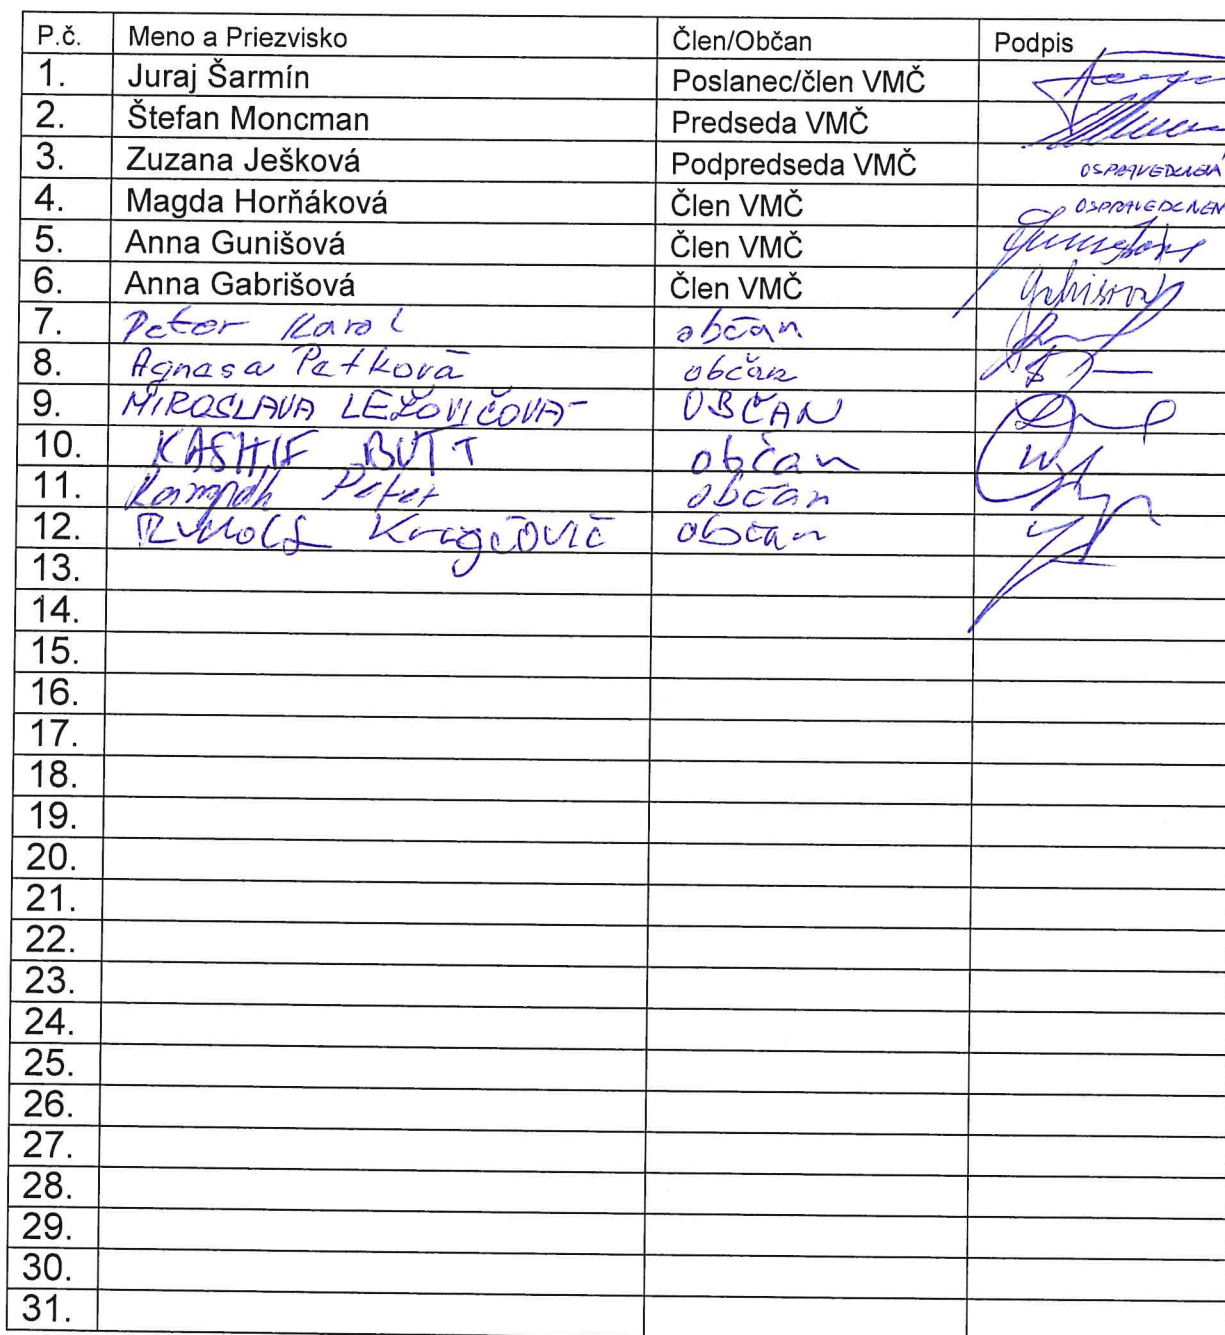 P.č. Meno a Priezvisko Člen/Občan Podpis
1. Juraj Šarmín Poslanec/člen VMČ
2. Štefan Moncman Predseda VMČ
3. Zuzana Ješková Podpredseda VMČ OSPRAVEDLNENÁ
4. Magda Horňáková Člen VMČ
5. Anna Gunišová Člen VMČ
6. Anna Gabrišová Člen VMČ
7. Peter Karol občan
8. Agnesa Petková občan
9. MIROSLAVA OBČAN
10. KASHIF BUTT občan
11. Peter občan
12. občan
13.
14.
15.
16.
17.
18.
19.
20.
21.
22.
23.
24.
25.
26.
27.
28.
29.
30.
31.